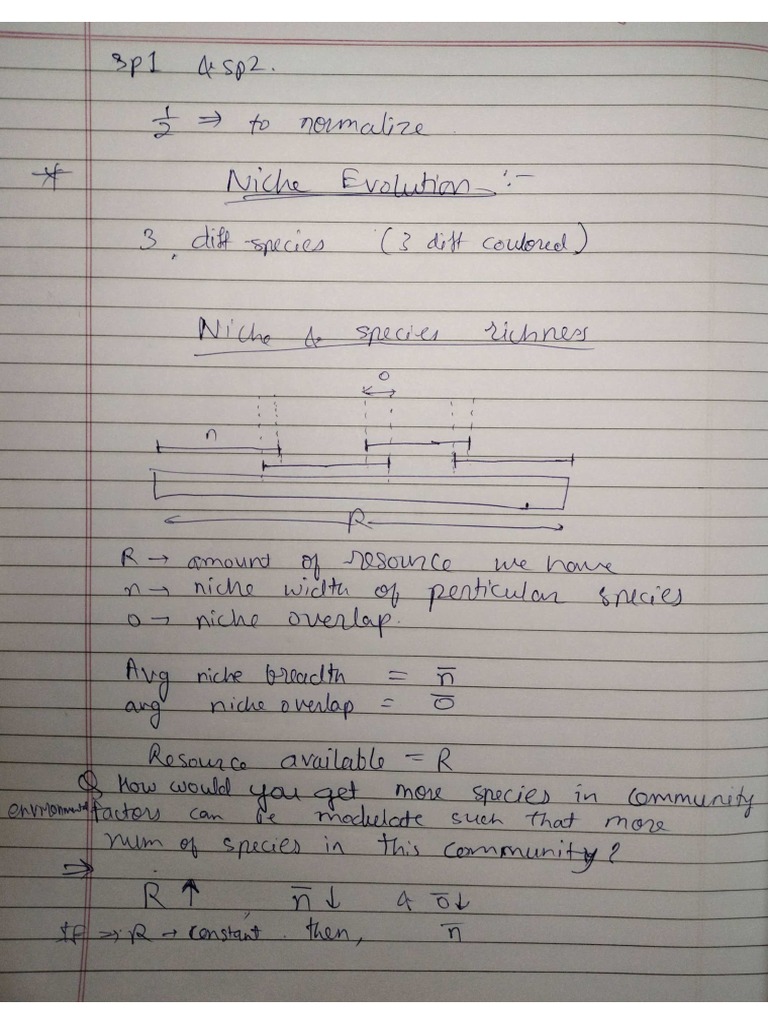 sp1 & sp2.
1/2 ⇒ to normalize
* Niche Evolution :-
3 diff species (3 diff coulored)
Niche & species richness
o
n
R
R → amount of resource we have
n → niche width of perticular species
o → niche overlap.
Avg niche breadth = n̅
avg niche overlap = o̅
Resource available = R
Q How would you get more species in community
environmental factors can be modulate such that more
num of species in this community?
⇒
R ↑ n̅ ↓ & o̅ ↓
If ⇒ R → constant. then, n̅